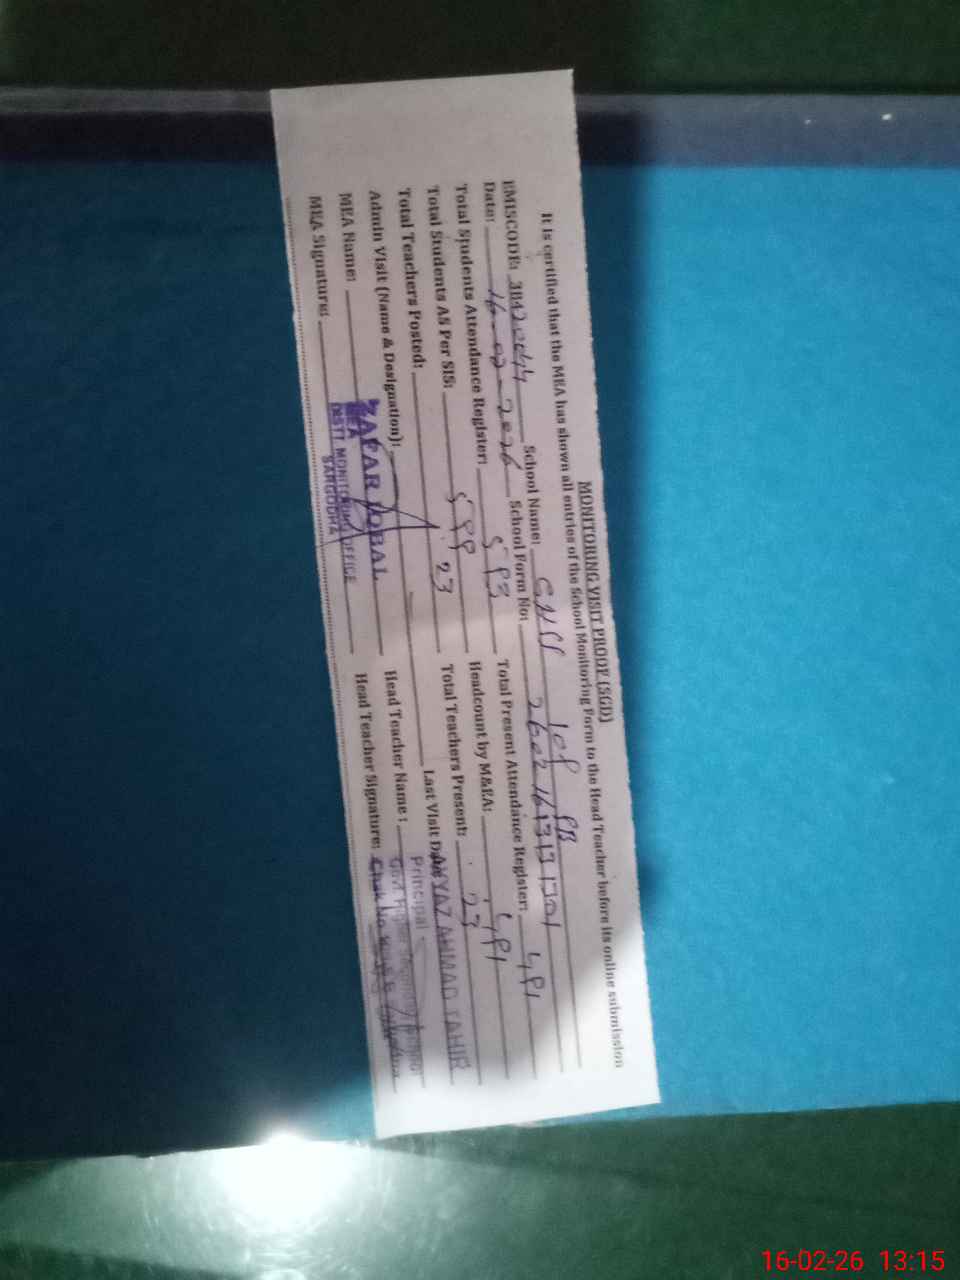 MONITORING VISIT PROOF (SGD)
It is certified that the MEA has shown all entries of the School Monitoring Form to the Head Teacher before its online submission
EMISCODE: 38420044 School Name: GHSS 108 PB
Date: 16-02-2026 School Form No:
Total Students Attendance Register: 593 Total Present Attendance Register: 491
Total Students AS Per SIS: 599 Headcount by M&EA: 491
Total Teachers Posted: 23 Total Teachers Present: 23
Admin Visit (Name & Designation): Last Visit Date
MEA Name: ZAFAR IQBAL Head Teacher Name :
MEA Signature: Head Teacher Signature:
MEA
DISTT. MONITORING OFFICE
SARGODHA
AHMAD TAHIR
Principal
Govt. Higher Secondary School
Chak No.
16-02-26 13:15